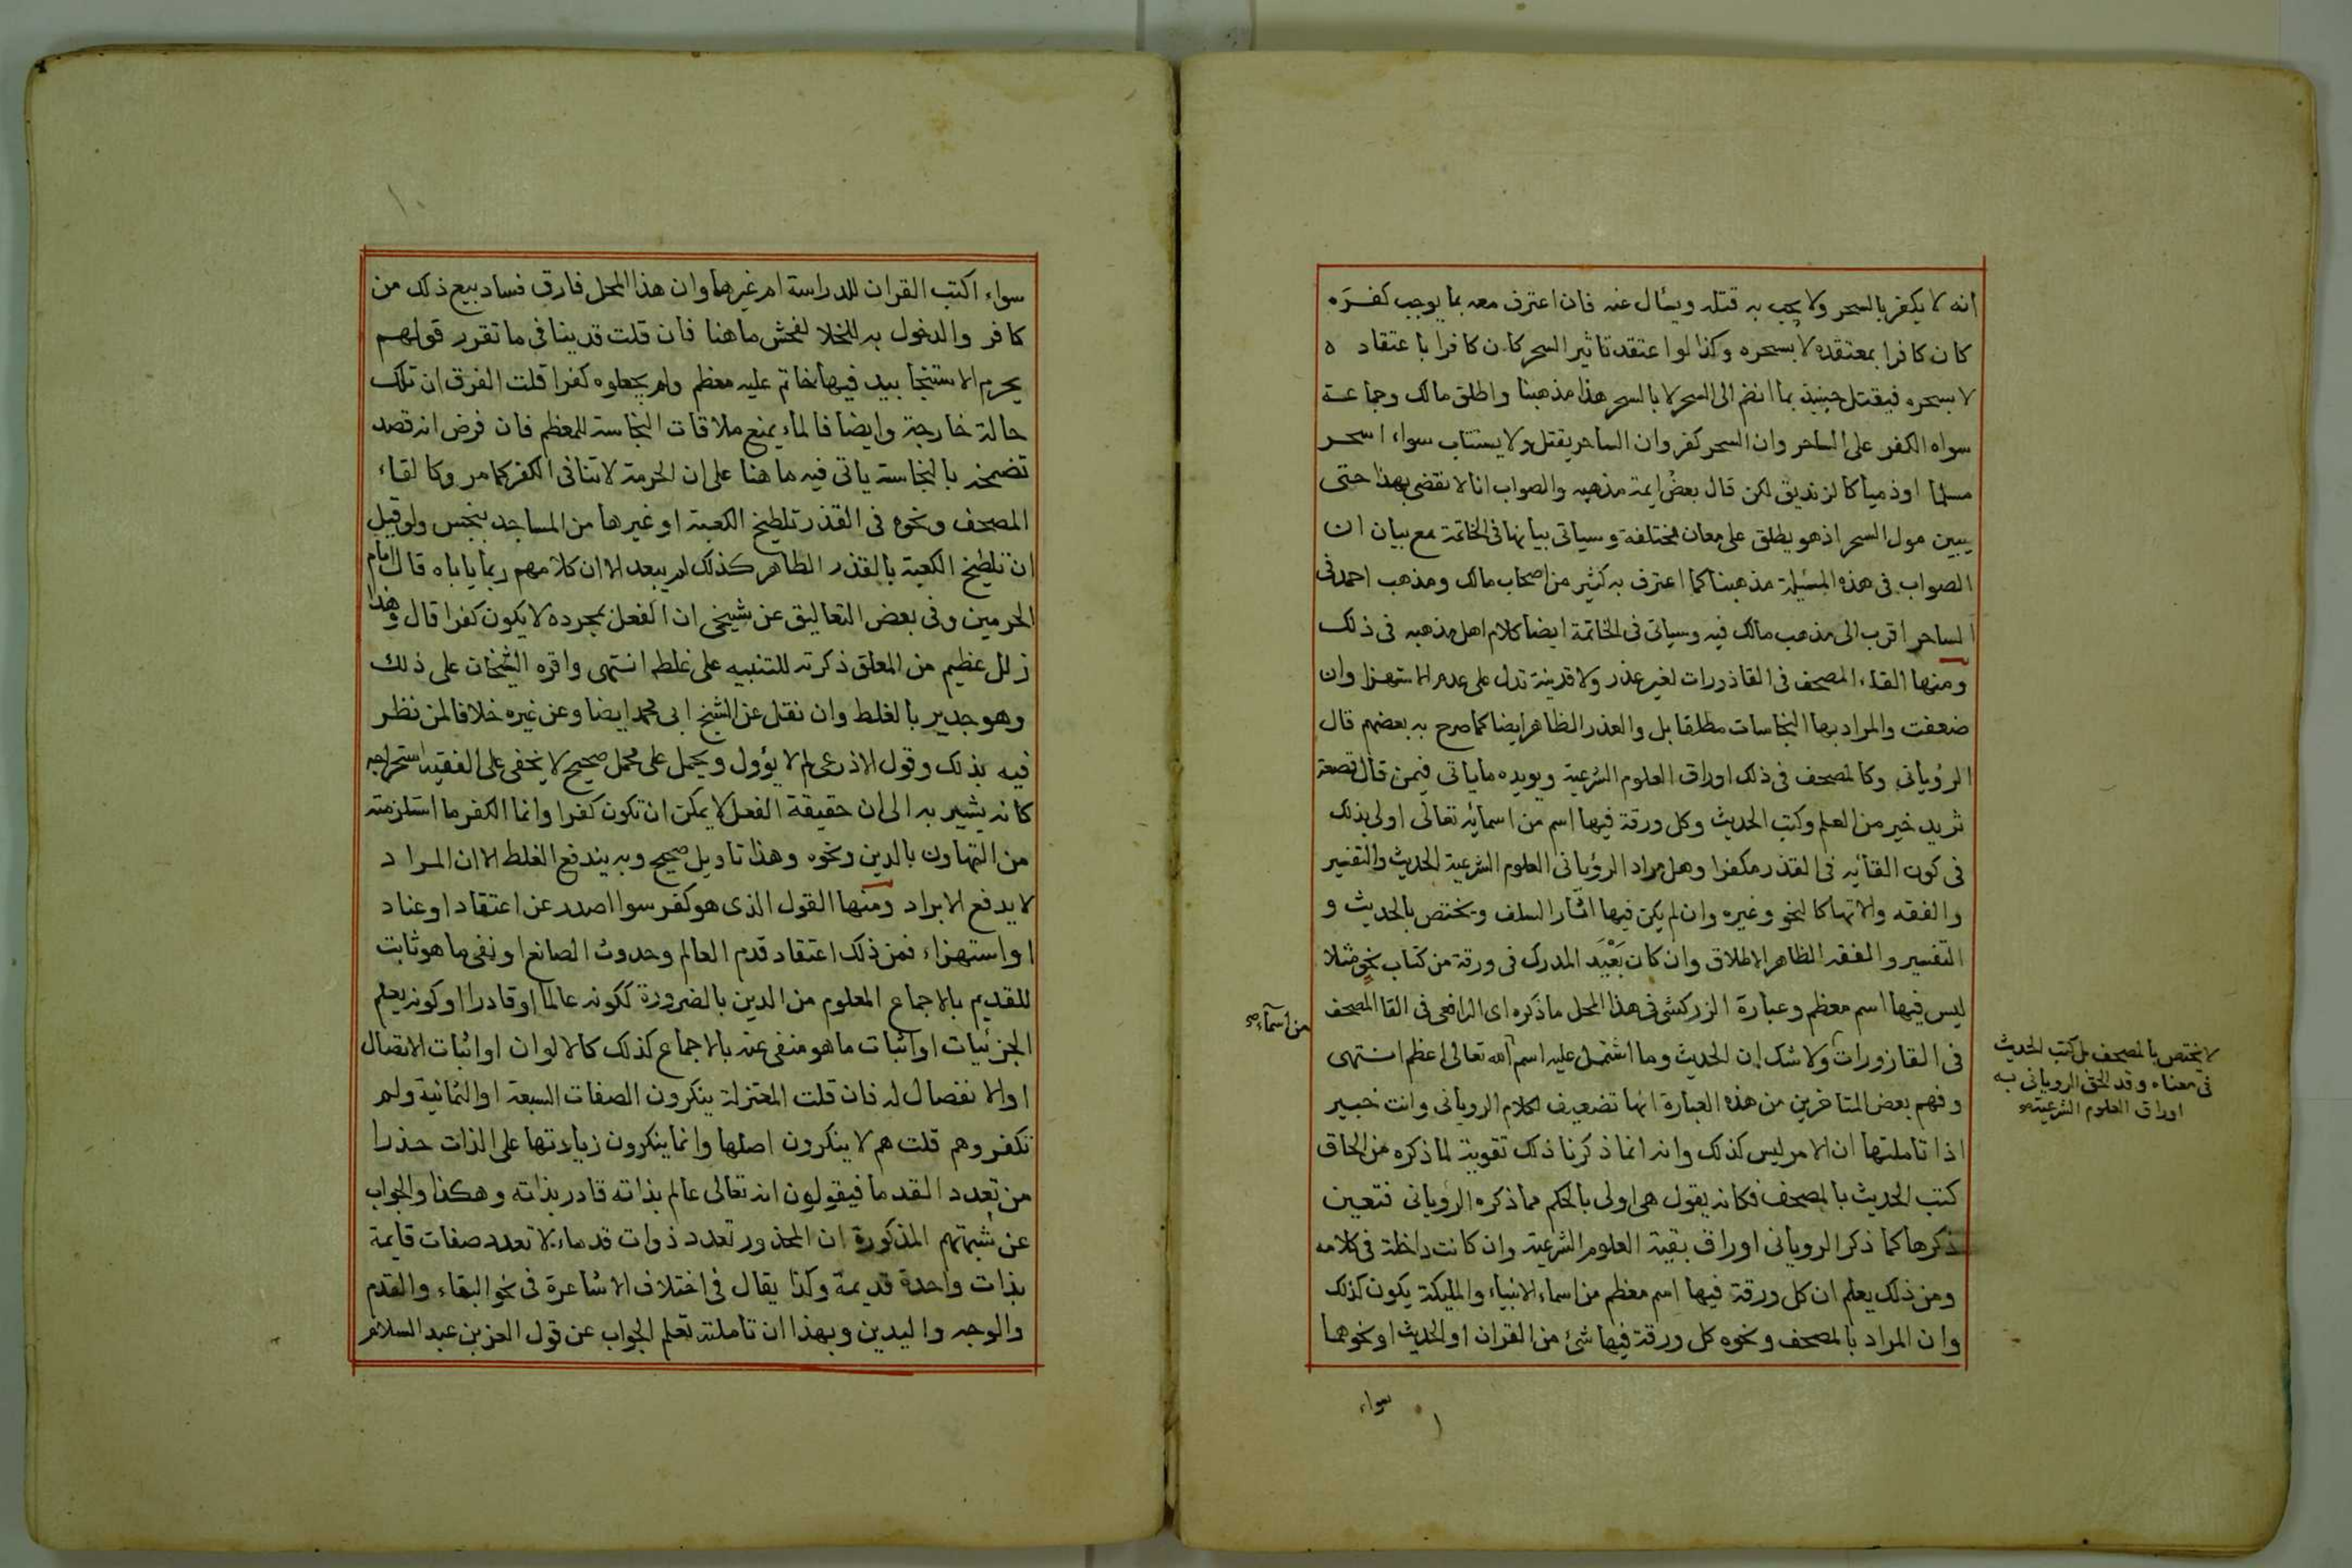 انه لا يكفر بالسحر ولا يجب به قتله ويسأل عنه فان اعترف معه بما يوجب كفره
كان كافرا بمعتقده لا بسحره وكذا لو اعتقد تاثير السحر كان كافرا باعتقاده
لا بسحره فيقتل حينيذ بما انضم الى السحر لا بالسحر هذا مذهبنا واطلق مالك وجماعة
سواه الكفر على الساحر وان السحر كفر وان الساحر يقتل ولا يستتاب سواء اسحر
مسلما او ذميا كالزنديق لكن قال بعض ايمة مذهبه والصواب انا لا نقضى بهذا حتى
يبين مول السحر اذ هو يطلق على معان مختلفة وسياتى بيانها فى الخاتمة مع بيان ان
الصواب فى هذه المسئلة مذهبنا كما اعترف به كثير من اصحاب مالك ومذهب احمد فى
الساحر اقرب الى مذهب مالك فيه وسياتى فى الخاتمة ايضا كلام اهل مذهبه فى ذلك
ومنها القاء المصحف فى القاذورات لغير عذر ولا قرينة تدل على عدم الاستهزا وان
ضعفت والمراد بها النجاسات مطلقا بل والعذر الظاهر ايضا كما صرح به بعضهم قال
الرؤيانى وكالمصحف فى ذلك اوراق العلوم الشرعية ويويده ما ياتى فيمن قال قصعة
ثريد خير من العلم وكتب الحديث وكل ورقة فيها اسم من اسمائه تعالى اولى بذلك
فى كون القائه فى القذر مكفرا وهل مراد الرؤيانى العلوم الشرعية الحديث والتفسير
والفقه والاتها كالنحو وغيره وان لم يكن فيها اثار السلف ويختص بالحديث و
التفسير والفقه الظاهر الاطلاق وان كان بعيد المدرك فى ورقة من كتاب نحو مثلا
ليس فيها اسم معظم وعبارة الزركشى فى هذا المحل ما ذكره اى الرافعى فى القا المصحف
فى القازورات ولا شك ان الحديث وما اشتمل عليه اسم الله تعالى اعظم انتهى
وفهم بعض المتاخرين من هذه العبارة انها تضعيف لكلام الرويانى وانت خبير
اذا تاملتها ان الامر ليس كذلك وانه انما ذكرنا ذلك تقوية لما ذكره من الحاق
كتب الحديث بالمصحف فكانه يقول هى اولى بالحكم مما ذكره الرويانى فتعين
ذكرها كما ذكر الرويانى اوراق بقية العلوم الشرعية وان كانت داخلة فى كلامه
ومن ذلك يعلم ان كل ورقة فيها اسم معظم من اسماء الانبياء والمليكة يكون كذلك
وان المراد بالمصحف ونحوه كل ورقة فيها شئ من القران او الحديث او نحوهما
سواء
لا يختص بالمصحف بل كتب الحديث
فى معناه وقد الحق الرويانى به
اوراق العلوم الشرعية
من اسماء
سواء اكتب القران للدراسة ام غيرها وان هذا المحل فارق فساد بيع ذلك من
كافر والدخول به للخلا لفحش ما هنا فان قلت قد ينافى ما تقرر قولهم
يحرم الاستنجا بيد فيها خاتم عليه معظم ولم يجعلوه كفرا قلت الفرق ان تلك
حالة خارجة وايضا فالماء يمنع ملاقات النجاسة للمعظم فان فرض انه قصد
تضمخه بالنجاسة ياتى فيه ما هنا على ان الحرمة لا تنافى الكفر كما مر وكالقاء
المصحف ونحوه فى القذر تلطيخ الكعبة او غيرها من المساجد بنجس ولو قيل
ان تلطيخ الكعبة بالقذر الطاهر كذلك لم يبعد الا ان كلامهم ربما ياباه قال امام
الحرمين وفى بعض التعاليق عن شيخى ان الفعل بمجرده لا يكون كفرا قال وهذا
زلل عظيم من المعلق ذكرته للتنبيه على غلطه انتهى واقره الشيخان على ذلك
وهو جدير بالغلط وان نقل عن الشيخ ابى محمد ايضا وعن غيره خلافا لمن نظر
فيه بذلك وقول الاذرعى لم لا يؤول ويحمل على محمل صحيح لا يخفى على الفقيه استخراجه
كانه يشير به الى ان حقيقة الفعل لا يمكن ان تكون كفرا وانما الكفر ما استلزمته
من التهاون بالدين ونحوه وهذا تاويل صحيح وبه يندفع الغلط الا ان المراد
لا يدفع الايراد ومنها القول الذى هو كفر سوا اصدر عن اعتقاد او عناد
او استهزاء فمن ذلك اعتقاد قدم العالم وحدوث الصانع او نفى ما هو ثابت
للقديم بالاجماع المعلوم من الدين بالضرورة ككونه عالما او قادرا او كونه يعلم
الجزئيات او اثبات ما هو منفى عنه بالاجماع كذلك كالالوان او اثبات الاتصال
او الانفصال له فان قلت المعتزلة ينكرون الصفات السبعة او الثمانية ولم
تكفروهم قلت هم لا ينكرون اصلها وانما ينكرون زيادتها على الذات حذرا
من تعدد القدما فيقولون انه تعالى عالم بذاته قادر بذاته وهكذا والجواب
عن شبهتهم المذكورة ان المحذور تعدد ذوات قدماء لا تعدد صفات قايمة
بذات واحدة قديمة وكذا يقال فى اختلاف الاشاعرة فى نحو البقاء والقدم
والوجه واليدين وبهذا ان تاملته تعلم الجواب عن قول العز بن عبد السلام